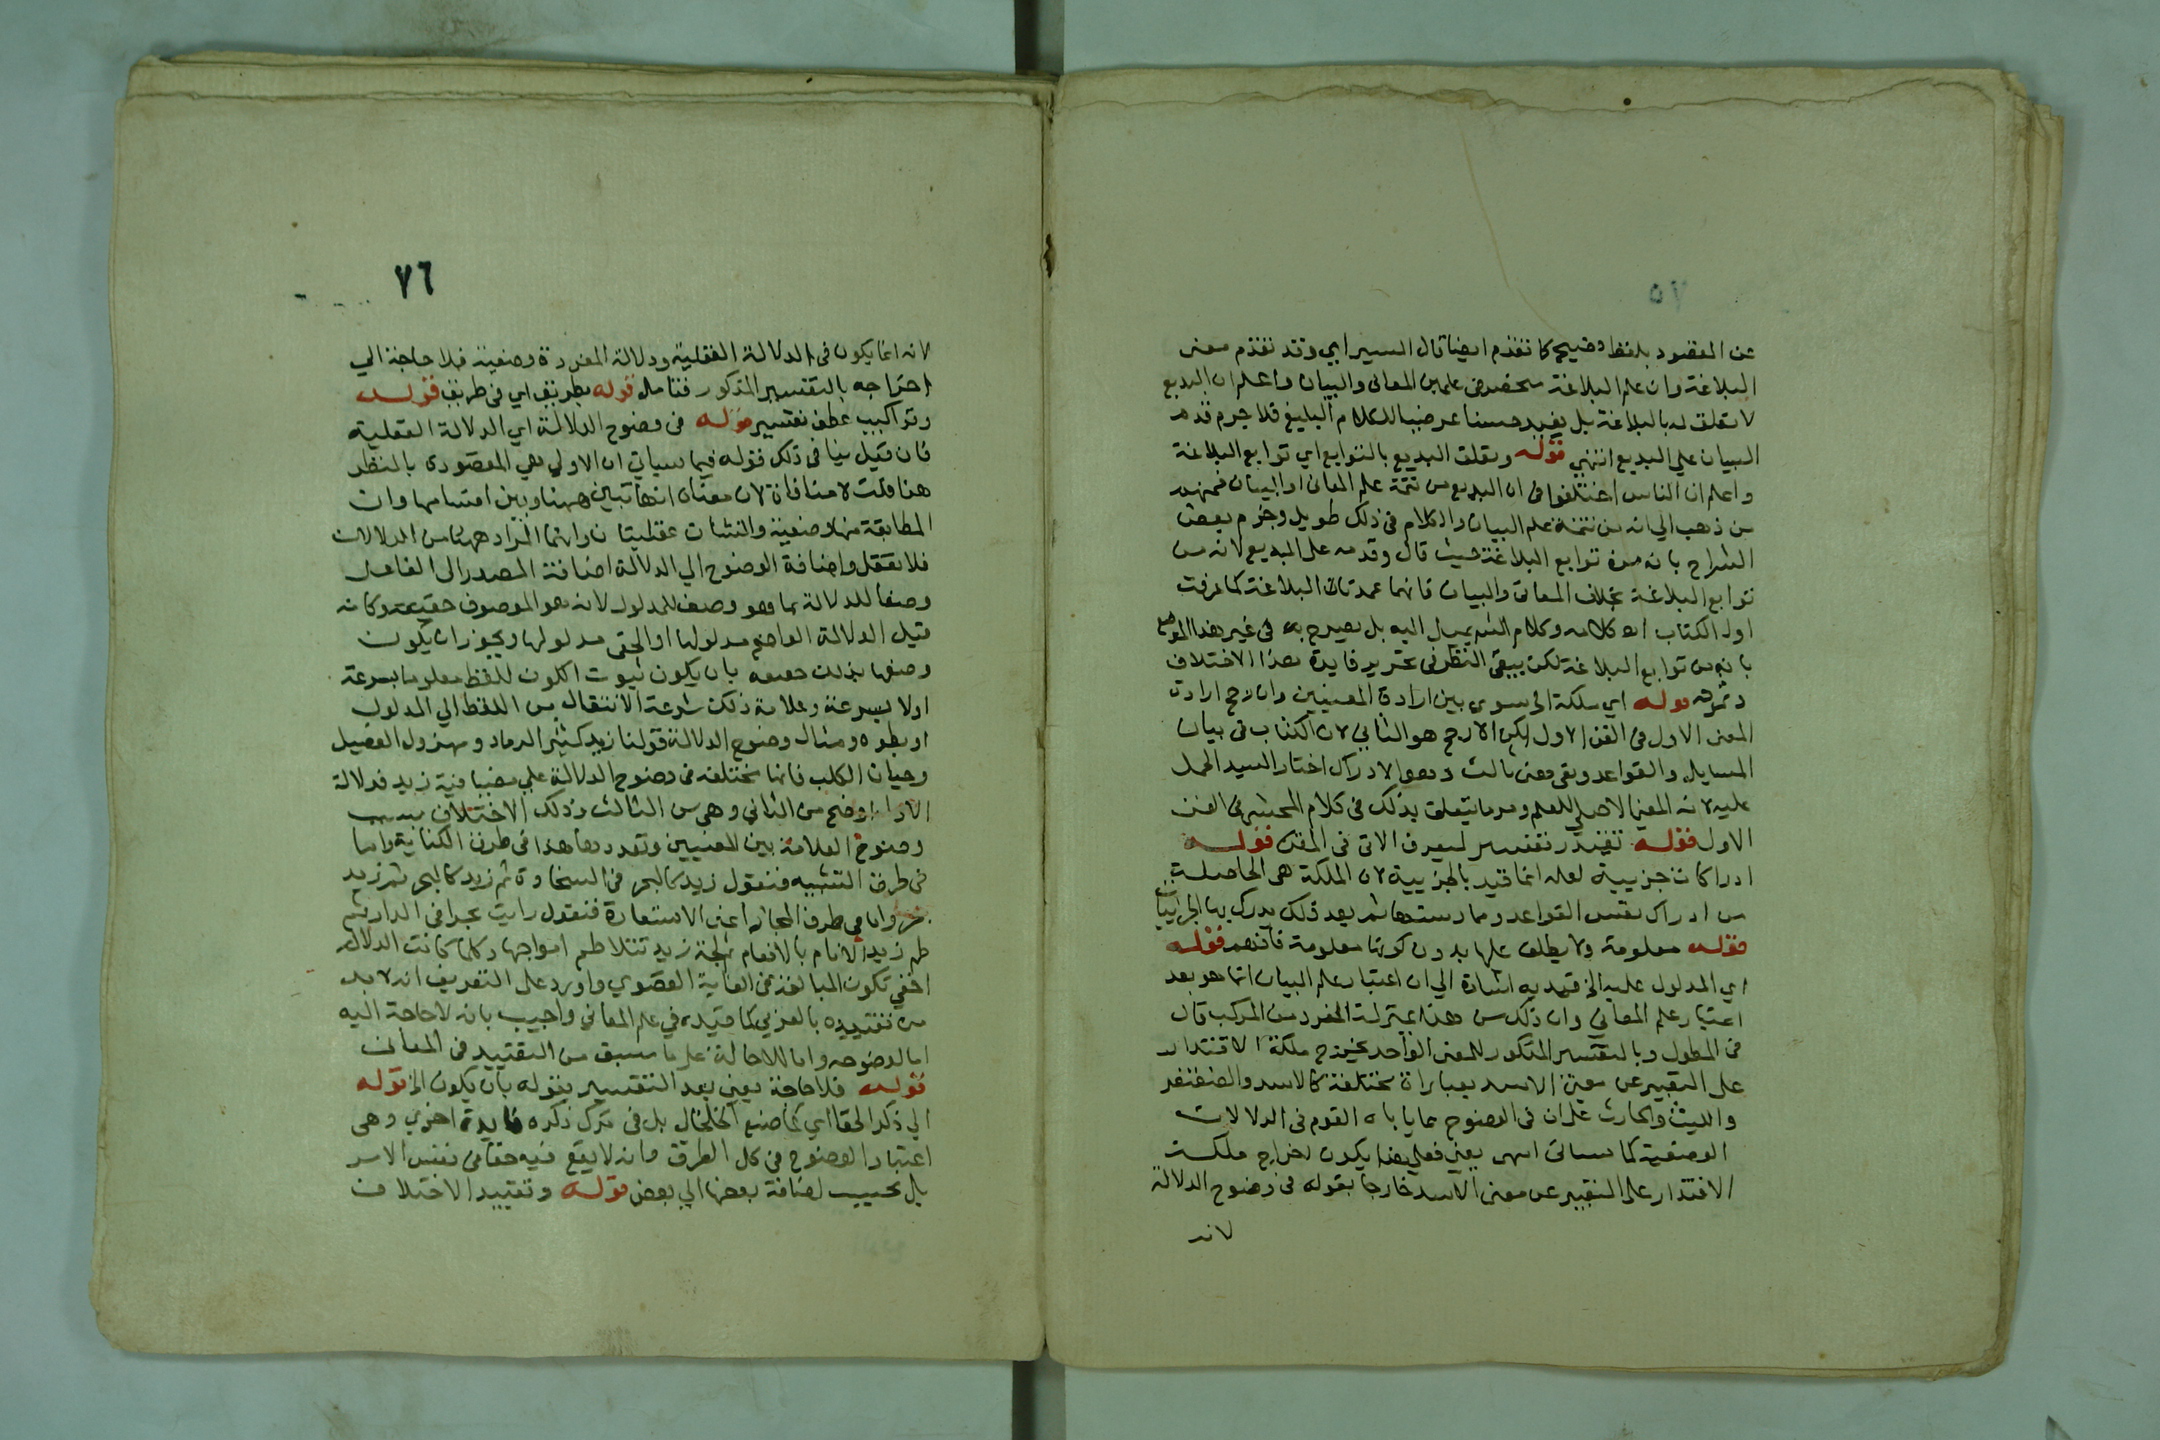 عن المقصود بلفظ فصيح كما تقدم ايضا قال السيرامي وقد تقدم معنى
البلاغة وان علم البلاغة منحصر في علمين المعاني والبيان واعلم ان البديع
لا تعلق له بالبلاغة بل يفيد حسنا عرضيا للكلام البليغ فلا جرم قدم
البيان على البديع انتهي قوله وتعلق البديع بالتوابع اي توابع البلاغة
واعلم ان الناس اختلفوا في ان البديع من تتمة علم المعاني او البيان فمنهم
من ذهب الي انه من تتمة علم البيان والكلام في ذلك طويل وجزم بعض
الشراح بانه من توابع البلاغة حيث قال وقدمه على البديع لانه من
توابع البلاغة بخلاف المعاني والبيان فانهما عمدتان البلاغة كما عرفت
اول الكتاب وكلام الش يميل اليه بل يصرح به في غير هذا الموضع
بانه من توابع البلاغة لكن يبقى النظر في تحرير فايدة هذا الاختلاف
وثمرته قوله اي ملكة الخ سوي بين ارادة المعنيين وان رجح ارادة
المعنى الاول في الفن الاول لكن الارجح هو الثاني لان الكتاب في بيان
المسايل والقواعد وبقى معنى ثالث وهو الادراك اختار السيد الحمل
عليه لانه المعنى الاصلي للعلم ومر ما يتعلق بذلك في كلام المحشي في الفن
الاول قوله تقتدر تفسير ليعرف الاتي في المتن قوله
ادراكات جزيية لعله انما قيد بالجزيية لان الملكة هي الحاصلة
من ادراك نفس القواعد وممارستها ثم بعد ذلك يدرك بها الجزييات
قوله معلومة ولا يطلق علمها بدون كونها معلومة فافهم قوله
اي المدلول عليه الخ قيد به اشارة الي ان اعتبار علم البيان انما هو بعد
اعتبار علم المعاني وان ذلك من هذا بمنزلة المفرد من المركب قال
في المطول وبالتفسير المذكور للمعنى الواحد يخرج ملكة الاقتدار
على التعبير عن معنى الاسد بعبارات مختلفة كالاسد والغضنفر
والليث والحارث على ان في الوضوح مما ياباه القوم في الدلالات
الوضعية كما سياتي انتهى يعني فعلى هذا يكون اخراج ملكة
الاقتدار على التعبير عن معنى الاسد خارجا بقوله في وضوح الدلالة
لانه
٧٦
لانه انما يكون في الدلالة العقلية ودلالة المفردة وضعية فلا حاجة الي
اخراجه بالتفسير المذكور فتامل قوله بطريق اي في طريق قوله
وتراكيب عطف تفسير قوله في وضوح الدلالة اي الدلالة العقلية
فان قيل ينافي ذلك قوله فيما سياتي ان الاولي هي المقصودة بالنظر
هنا قلت لا منافاة لان معناه انها تبين ههنا وبين اقسامها وان
المطابقة منها وضعية والثنتان عقليتان وانها المراد ههنا من الدلالات
فلا تغفل واضافة الوضوح الي الدلالة اضافة المصدر الى الفاعل
وصفا للدلالة بما هو وصف للمدلول لانه هو الموصوف حقيقة وكانه
قيل الدلالة الواضح مدلولها او الخفي مدلولها ويجوز ان يكون
وصفها بذلك حقيقة بان يكون ثبوت اللفظ معلوما بسرعة
اولا بسرعة وعلامة ذلك سرعة الانتقال من اللفظ الي المدلول
او بطوه ومثال وضوح الدلالة قولنا زيد كثير الرماد ومهزول الفصيل
وجبان الكلب فانها مختلفة في وضوح الدلالة على مضيافية زيد فدلالة
الاول اوضح من الثاني وهي من الثالث وذلك الاختلاف بسبب
وضوح العلاقة بين المعنيين وتعددها هذا في طرق الكناية واما
في طرق التشبيه فنقول زيد كالبحر في السخاوة ثم زيد كالبحر ثم زيد
بحر واما في طرق المجاز اعني الاستعارة فنقول رايت بحرا في الدار ثم
طم زيد الانام بالانعام ثم لجة زيد تتلاطم امواجها وكلما كانت الدلالة
اخفي تكون المبالغة في الغاية القصوي واورد على التعريف انه لا بد
من تقييده بالعربي كما قيده في علم المعاني واجيب بانه لا حاجة اليه
اما لوضوحه واما للاحالة على ما سبق من التقييد في المعاني
قوله فلا حاجة يعني بعد التفسير بقوله بان يكون الخ قوله
الي ذكر الخفا اي كما صنع الخلخالي بل في ترك ذكره فايدة اخري وهي
اعتبار الوضوح في كل الطرق وانه لا يقع فيه خفا في نفس الامر
بل بحسب اضافة بعضها الي بعض قوله وتقييد الاختلاف